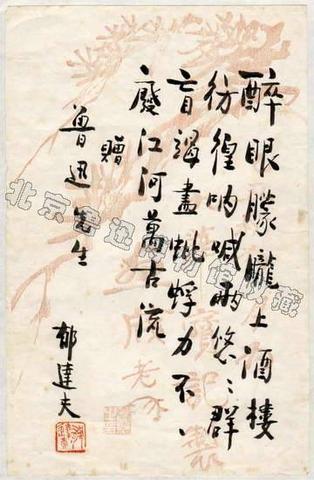 醉眼朦朧上酒樓
彷徨吶喊兩悠〻群
盲竭盡蚍蜉力不
廢江河萬古流
贈
魯迅先生
郁達夫
北京鲁迅博物馆收藏